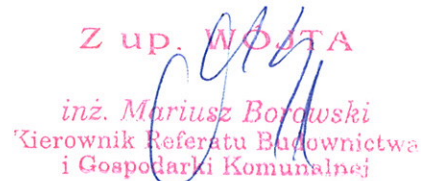 Z up. WÓJTA
inż. Mariusz Borowski
Kierownik Referatu Budownictwa
i Gospodarki Komunalnej